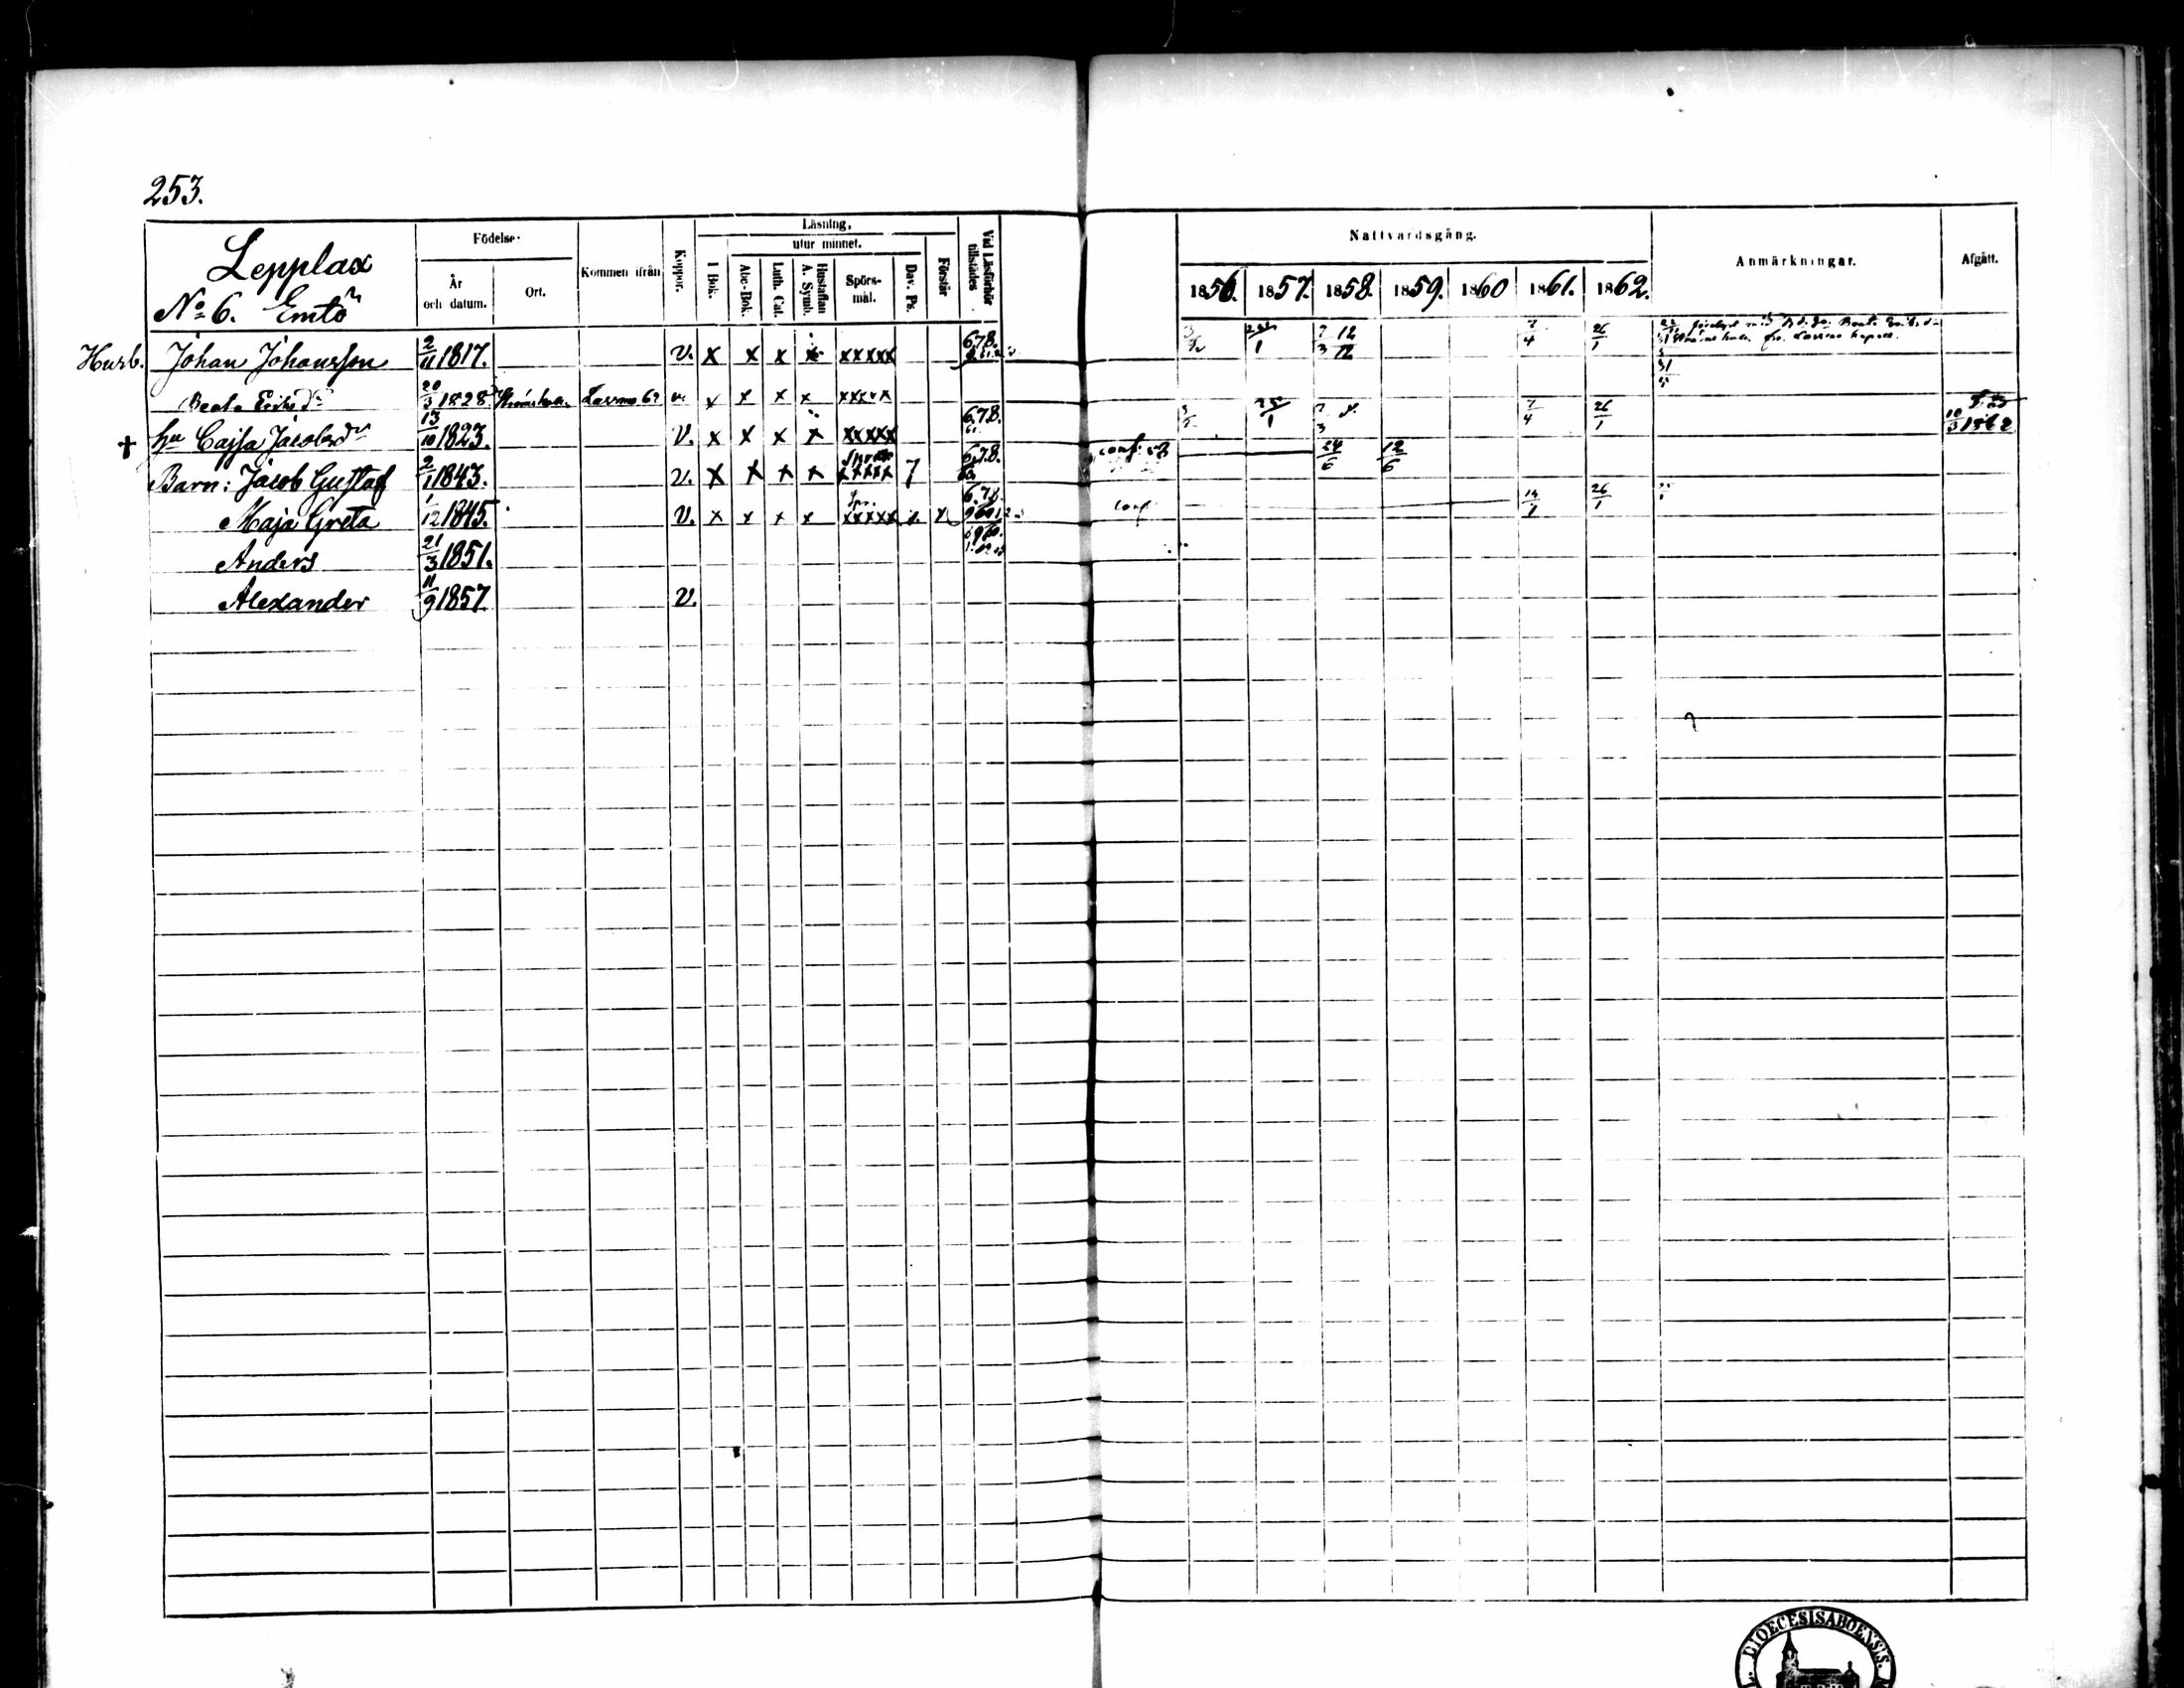 253.
Lepplax
No 6. Emtö
Födelse-
År och datum.
Ort.
Kommen ifrån
Koppor.
Läsning,
I Bok.
utur minnet.
Abc-Bok.
Luth. Cat.
Hustaflan A. Symb.
Spörs-mål.
Dav. Ps.
Förstår
Vid Läsförhör tillstädes
Nattvardsgång.
1856. 1857. 1858. 1859. 1860 1861. 1862.
Anmärkningar.
Afgått.
Husb. Johan Johansson 2/11 1817. v. x x x x xxxxx 6.7.8. 7/3 12/12 7/4 26/1
Beata Eriksdr 20/3 1828 Larsmo 62 v. x x x x xxxxx
† Hu Cajsa Jacobsdr 13/10 1823. V. x x x x xxxxx 6.7.8. 25/1 7/4 26/1 10/3 1862
Barn: Jacob Gustaf 2/1 1843. v. x x x x xxxxx 7 6.7.8. conf. 58 24/6 12/6
Maja Greta 1/12 1845. V. x x x x xxxxx x x 6.7.8. conf. 14/1 26/1
Anders 21/3 1851.
Alexander 11/9 1857. V.
DIOECESIS ABOENSIS.